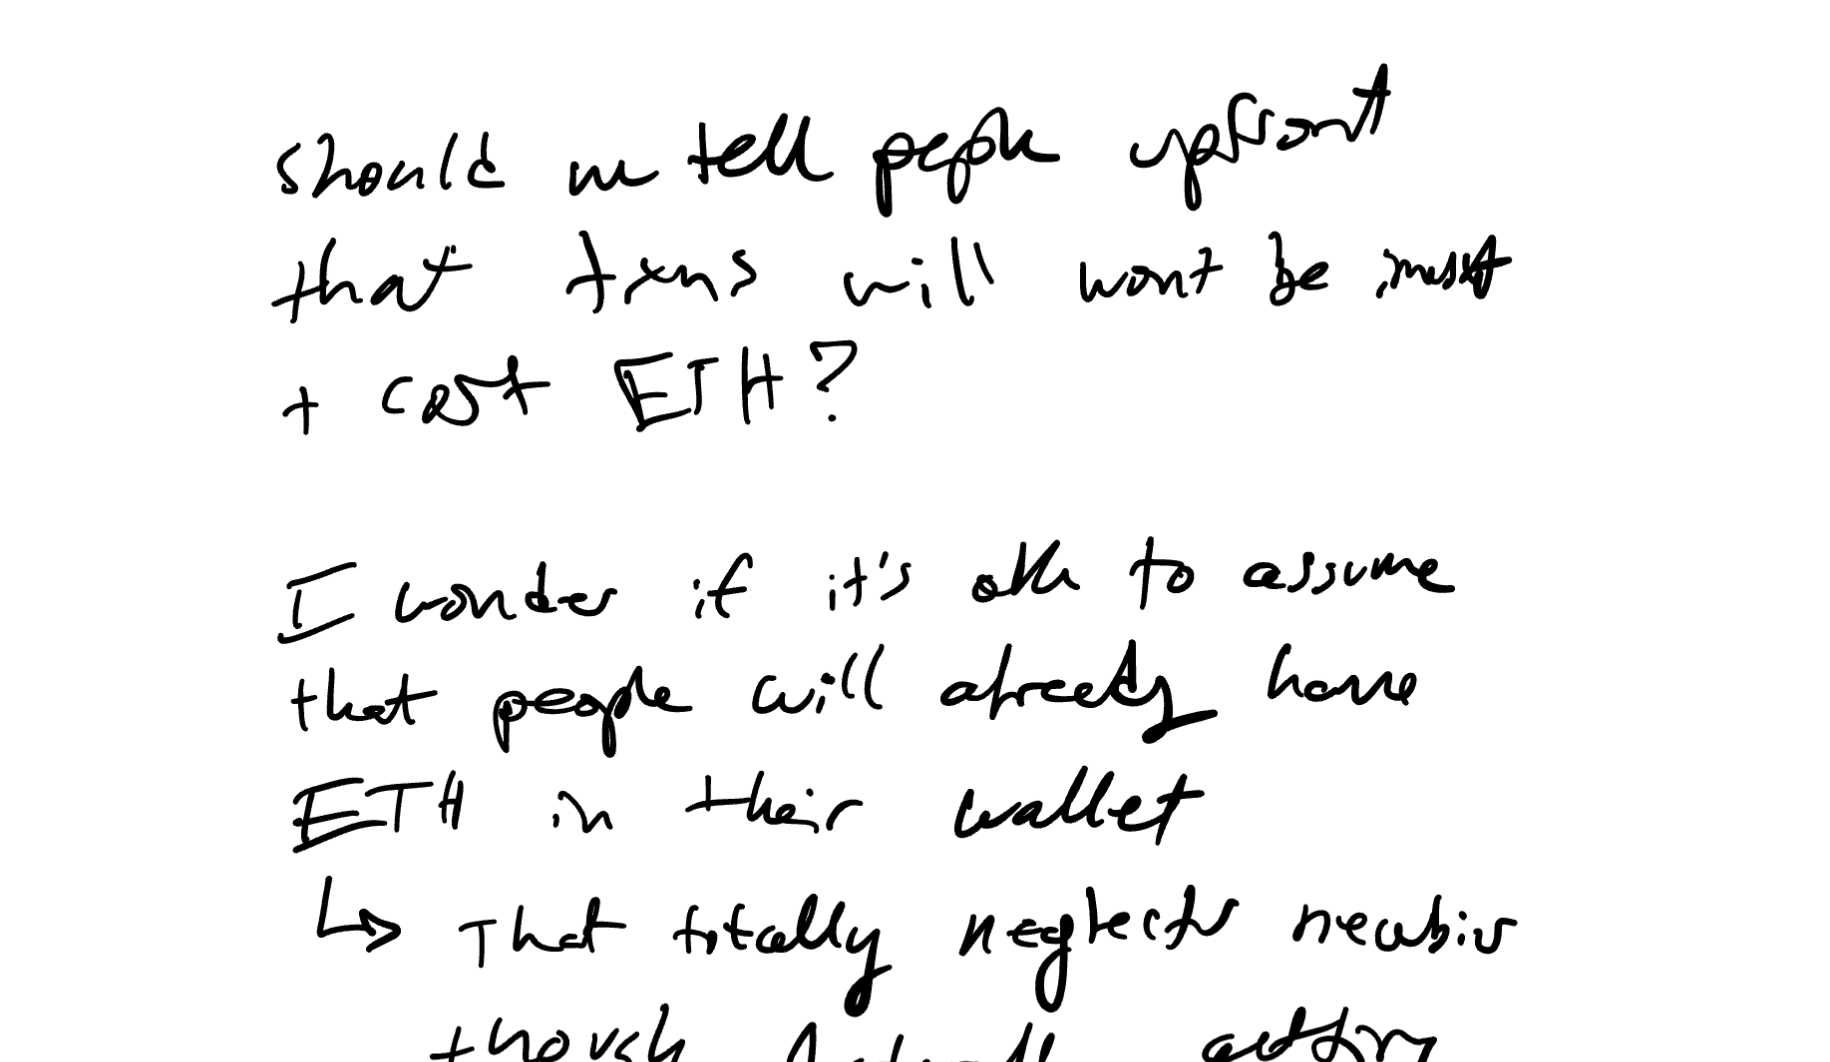 should we tell people upfront
that txns will wont be instant
+ cost ETH?
I wonder if it's okk to assume
that people will already have
ETH in their wallet
↳ That totally neglects newbies
though Actually getting